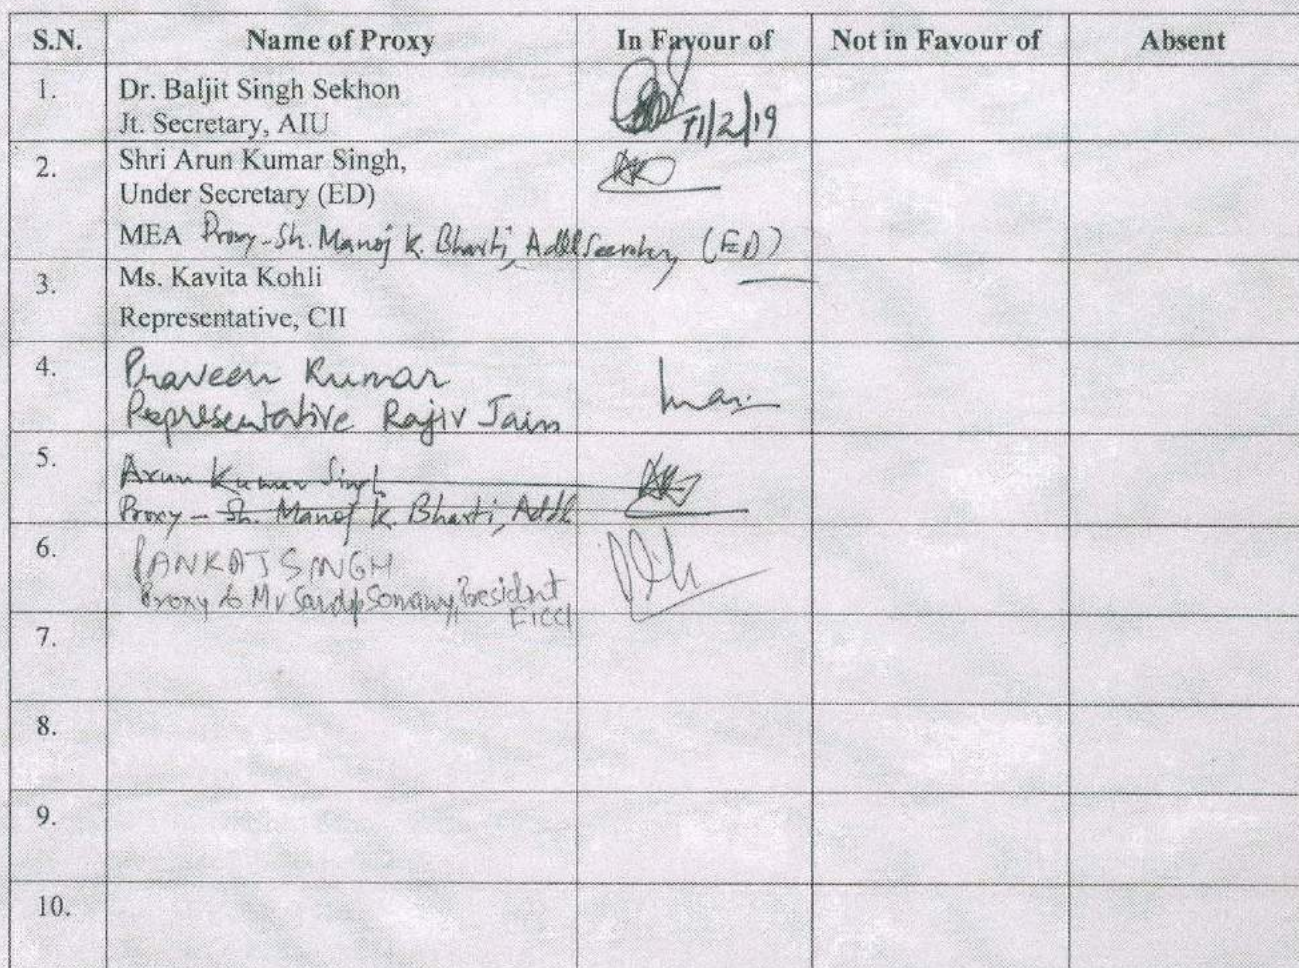 S.N. Name of Proxy In Favour of Not in Favour of Absent
1. Dr. Baljit Singh Sekhon
Jt. Secretary, AIU
11/2/19
2. Shri Arun Kumar Singh,
Under Secretary (ED)
MEA Proxy - Sh. Manoj K. Bharti, Addl Secretary (ED)
3. Ms. Kavita Kohli
Representative, CII
4. Praveen Kumar
Representative Rajiv Jain
5. Arun Kumar Singh
Proxy - Sh. Manoj K. Bharti, Addl
6. PANKAJ SINGH
Proxy to Mr Sandip Somany, President
FICCI
7.
8.
9.
10.